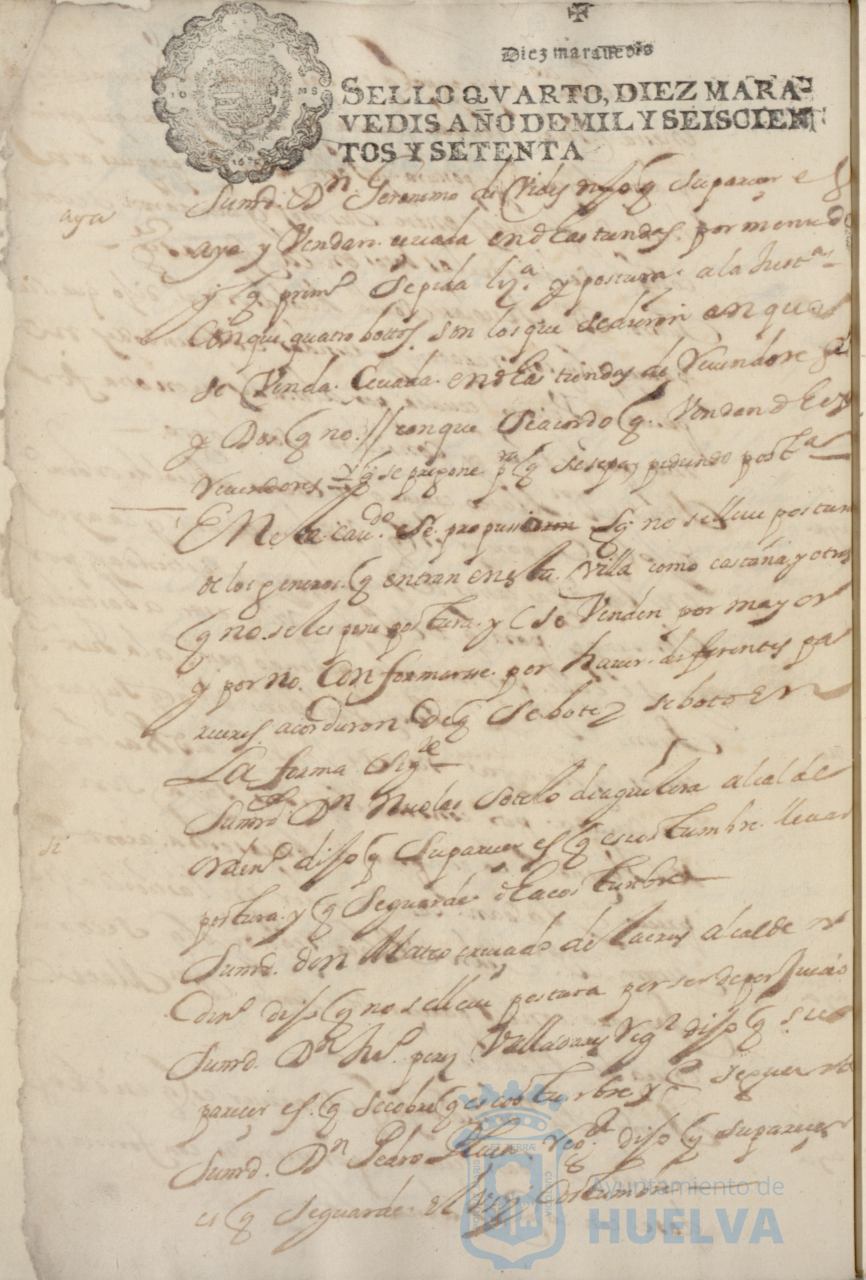 Diez marauedis
SELLO QVARTO, DIEZ MARA-
VEDIS AÑO DE MIL Y SEISCIEN-
TOS Y SETENTA
Sumrd. Dn Geronimo de dijo q su parecer e q
aya
aya y Vendan ceuada en dhas tiendas por menudo
y q primo se pida liza y postura a la Justa
Con que quatro bottos son los que se dieron en que
se Venda Ceuada en dhas tiendas de Reuendores
y Dos q no // con que se acordo q Vendan dhos
Reuendores y q se pregone pa q se sepa pidiendo posta
En este caudo se propusieron q no se lleue postura
de los generos q entran en esta Villa como castaña y otros
q no se les pone postura y se Venden por mayor
y por no Conformarse por hauer diferentes pa
receres acordaron de q se bote y se boto En
La forma sigte
Sumrd Dn Nicolas Sotelo de aguilera alcalde
ordino dijo q su parecer es q es costumbre lleuar
postura y q se guarde dha costumbre
Sumrd. don Mateo de la cruz alcalde or
dino dijo q no se lleue postura por ser de perjuicio
Sumrd. Dn perez Valladares Regor dijo q su
parecer es q se cobre q es costumbre y
Sumrd. Dn Pedro Regor dijo q su parecer
es q se guarde el Uso y Costumbre
Ayuntamiento de
HUELVA